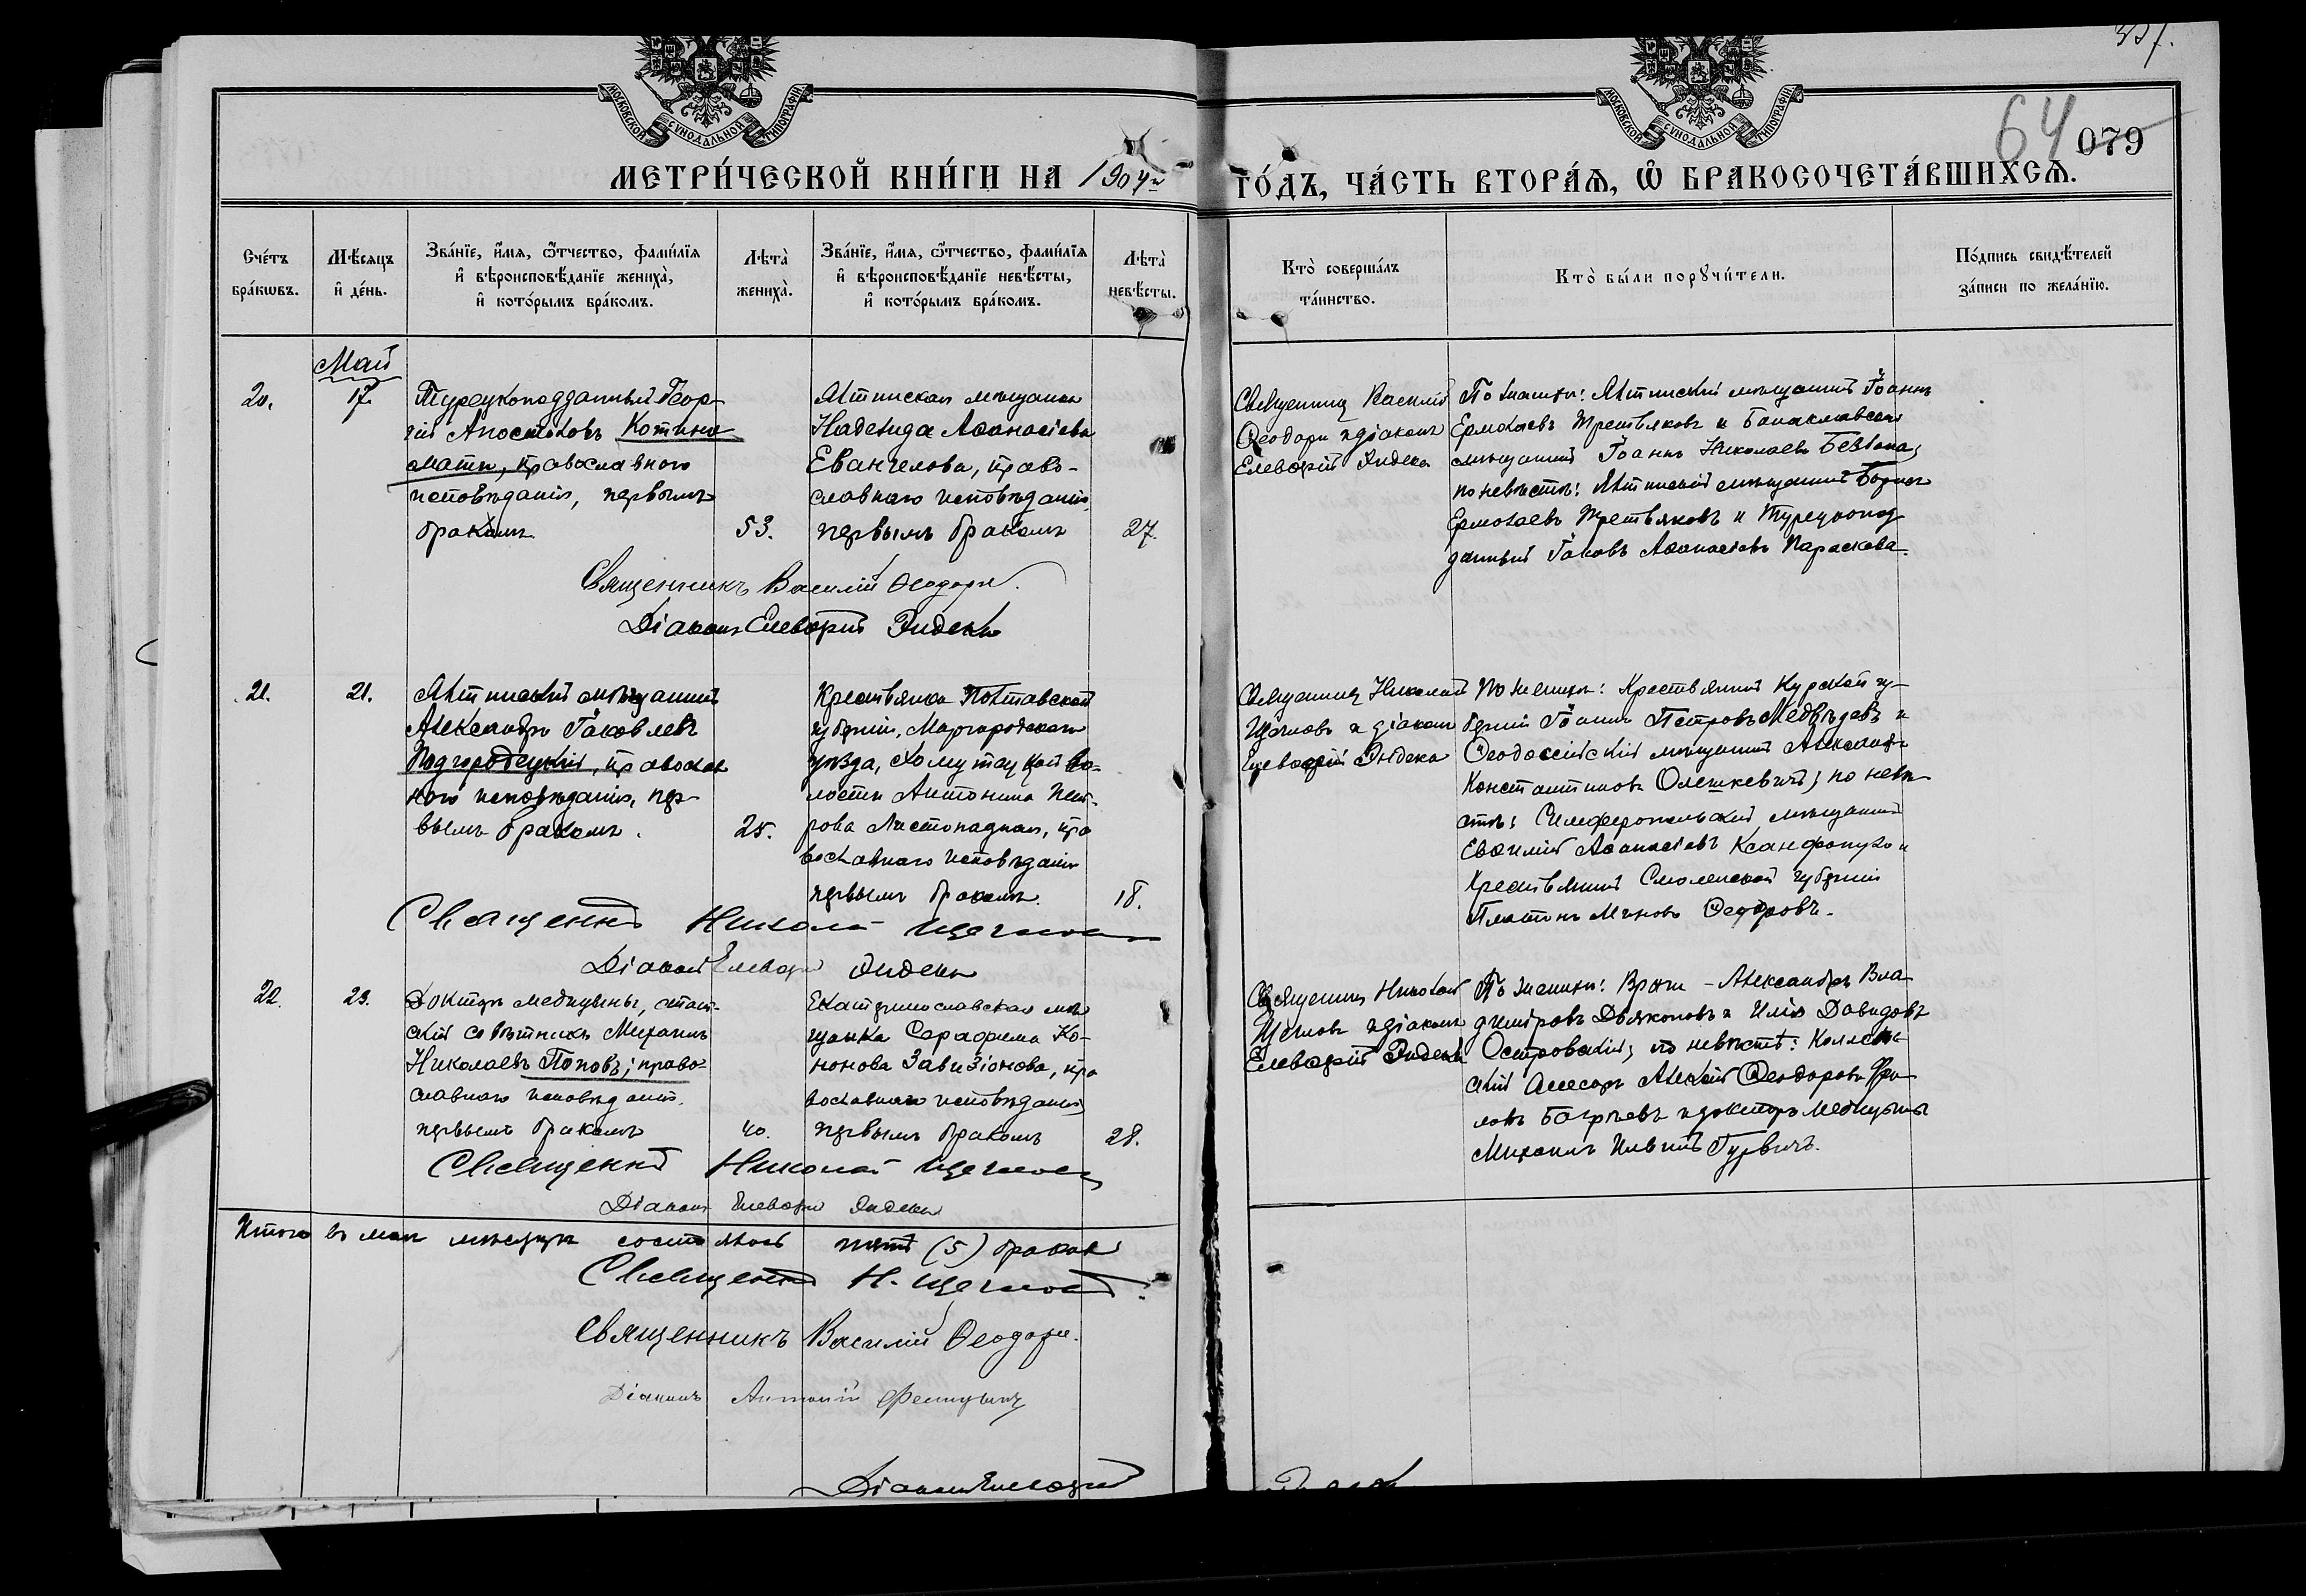 МОСКОВСКОЙ СѴНОДАЛЬНОЙ ТИПОГРАФІИ
МОСКОВСКОЙ СѴНОДАЛЬНОЙ ТИПОГРАФІИ
64 079
МЕТРИ́ЧЕСКОЙ КНИ́ГИ НА 1904 ГО́ДЪ, ЧА́СТЬ ВТОРА́Я, Ѡ БРАКОСОЧЕТА́ВШИХСЯ.
Сче́тъ бра́кѡвъ.
Мѣ́сяцъ и де́нь.
Зва́нїе, и́мя, ѻ́тчество, фами́лїя
и вѣроисповѣ́данїе жениха̀,
и кото́рымъ бра́комъ.
Лѣта̀ жениха̀.
Зва́нїе, и́мя, ѻ́тчество, фами́лїя
и вѣроисповѣ́данїе невѣ́сты,
и кото́рымъ бра́комъ.
Лѣта̀ невѣ́сты.
Кто̀ соверша́лъ
та́инство.
Кто̀ бы́ли порꙋчи́тели.
По́дпись свидѣ́телей
за́писи по жела́нїю.
Май
20.
17.
Турецкоподданный Геор-
гій Апостоловъ
православного
исповѣданія, первымъ
бракомъ
53.
Ялтинская мѣщанка
Надежда Аѳанасіева
Евангелова, право-
славнаго исповѣданія,
первымъ бракомъ
27.
Священникъ Василій
Ѳеодори и діаконъ
Елевѳерій
По женихѣ: Ялтинскій мѣщанинъ Іоаннъ
Ермолаевъ Третьяковъ и Балаклавскій
мѣщанинъ Іоаннъ Николаевъ
по невѣстѣ: Ялтинскій мѣщанинъ Борисъ
Ермолаевъ Третьяковъ и Турецкопод-
данный Іаковъ Аѳанасіевъ Параскева.
Священникъ Василій Ѳеодори.
Діаконъ Елевѳерій
21.
21.
Ялтинскій мѣщанинъ
Александръ Іаковлевъ
Подгородецкій, православ
ного исповѣданія, пер-
вымъ бракомъ.
25.
Крестьянка Полтавской
губерніи, Миргородскаго
уѣзда, Хомутецкой во-
лости Антонина Пет-
рова Листопадная, пра
вославнаго исповѣданія
первымъ бракомъ.
18.
Священникъ Николай
Щегловъ и діаконъ
Елевѳерій
По женихѣ: Крестьянинъ Курской гу-
берніи Іоаннъ Петровъ Медвѣдевъ и
Ѳеодосійскій мѣщанинъ Александръ
Константиновъ Олешкевичъ; по невѣ-
стѣ: Симферопольскій мѣщанинъ
Евѳимій Аѳанасіевъ
Крестьянинъ Смоленской губерніи
Платонъ Ѳедоровъ.
Священникъ Николай Щегловъ
Діаконъ Елевѳерій
22.
23.
Докторъ медицины, стат-
скій совѣтникъ Михаилъ
Николаевъ Поповъ; право-
славнаго исповѣданія.
первымъ бракомъ
40.
Екатеринославская мѣ
щанка Серафима Ко-
нонова Завизіонова, пра
вославнаго исповѣданія,
первымъ бракомъ
28.
Священникъ Николай
Щегловъ и діаконъ
Елевѳерій
По женихѣ: Врачи - Александръ Вла-
диміровъ Дьяконовъ и Илія Давидовъ
Островскій; по невѣстѣ: Коллеж-
скій Ассесоръ Алексій Ѳеодоровъ
и докторъ медицины
Михаилъ Ильинъ Гурвичъ.
Священникъ Николай Щегловъ
Діаконъ Елевѳерій
Итого въ маѣ мѣсяцѣ состоялось пять (5) браковъ
Священникъ Н. Щегловъ.
Священникъ Василій Ѳеодори.
Діаконъ Антоній
Діаконъ Елевѳерій